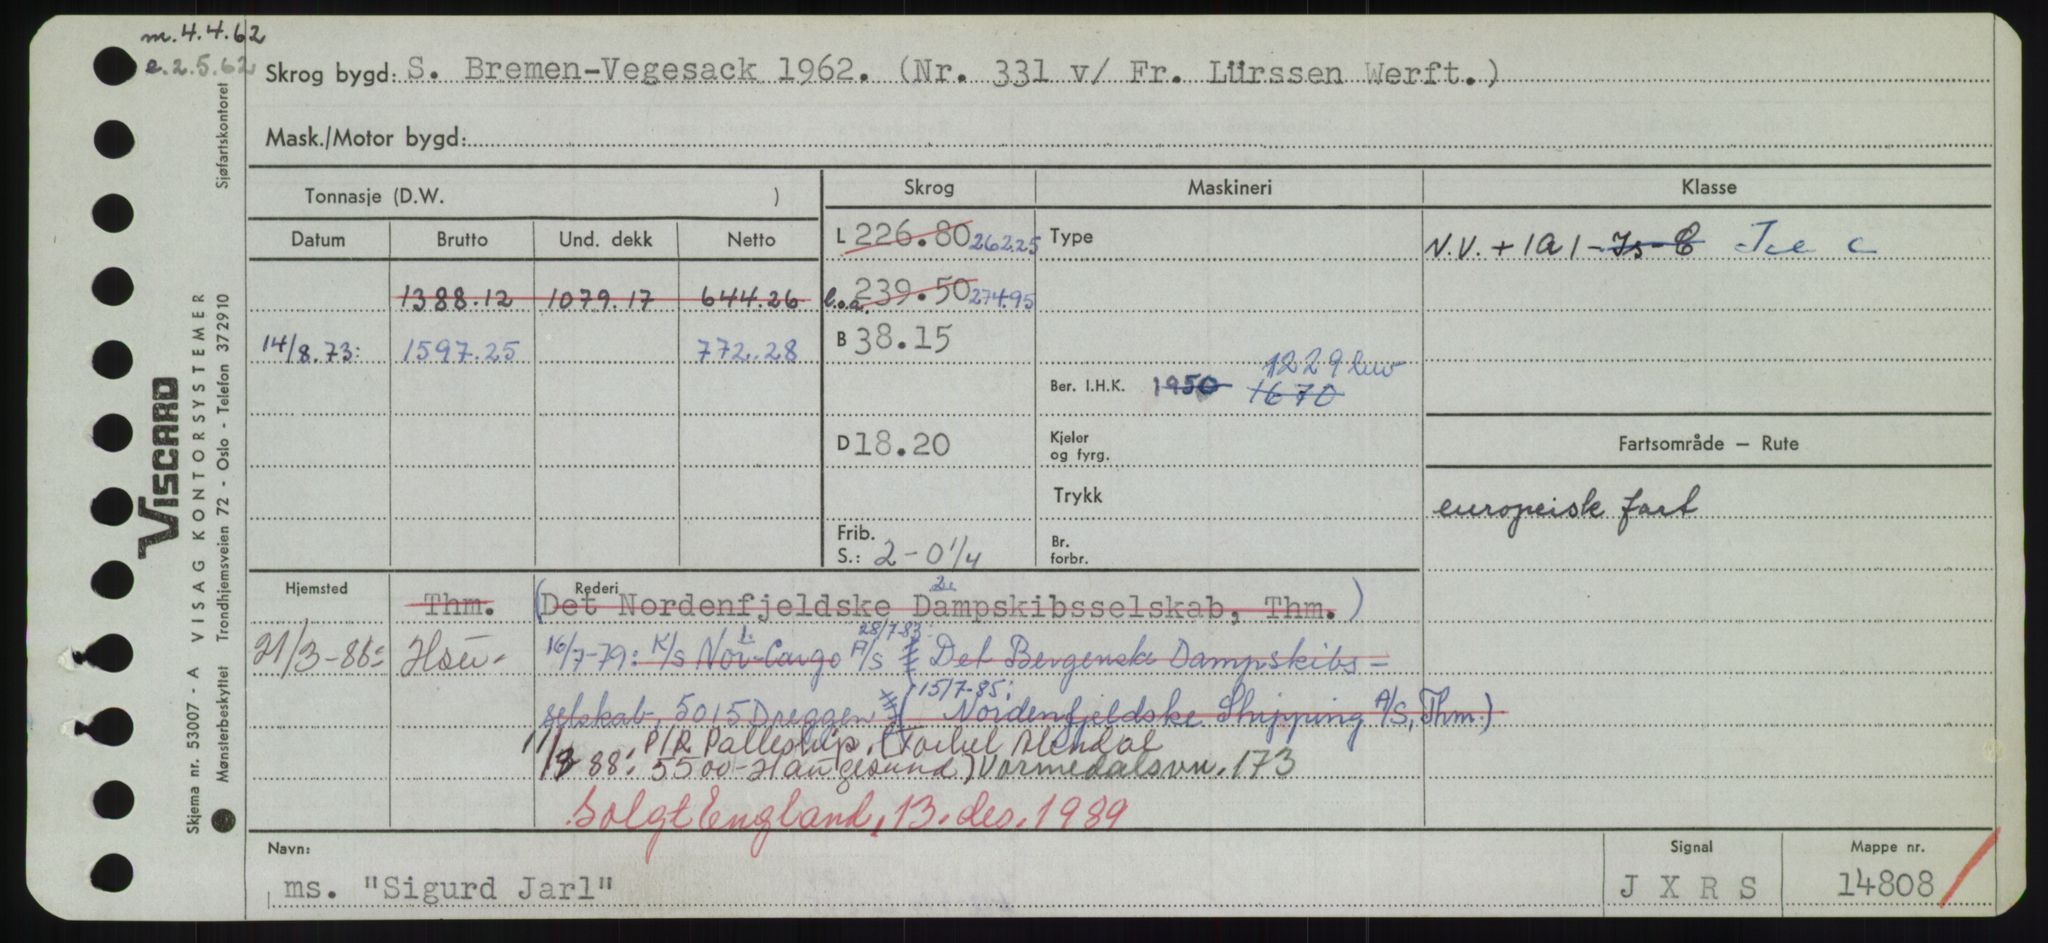 m. 4.4.62
e. 2.5.62
Skrog bygd: S. Bremen-Vegesack 1962. (Nr. 331 v/ Fr. Lürssen Werft.)
Mask./Motor bygd:
Tonnasje (D.W. ) Skrog Maskineri Klasse
Datum Brutto Und. dekk Netto L 226.80 262.25 Type N.V. + 1A1 - Is-C Ice C
1388.12 1079.17 644.26 l.o.a. 239.50 274.95
14/8.73: 1597.25 772.28 B 38.15
1229 kw
Ber. I.H.K. 1950 1670
D 18.20 Kjeler og fyrg. Fartsområde — Rute
Trykk europeisk fart
Frib. S.: 2-0 1/4 Br. forbr.
Hjemsted Rederi 2.
Thm. (Det Nordenfjeldske Dampskibsselskab, Thm.)
21/3-86: Hau- 16/7-79: K/S Nor-Cargo A/S 28/7-83: Det Bergenske Dampskibs-
selskab, 5015 Dreggen (15/7-85: Nordenfjeldske Shipping A/S, Thm.)
P/R Palleship, (Torkel Alendal
88: 5500-Haugesund) Vormedalsvn. 173
Solgt England, 13. des. 1989
Navn: Signal Mappe nr.
ms. "Sigurd Jarl" J X R S 14808
Skjema nr. 53007 - A VISAG KONTORSYSTEMER Sjøfartskontoret
Mønsterbeskyttet Trondhjemsveien 72 - Oslo - Telefon 372910
VISCARD